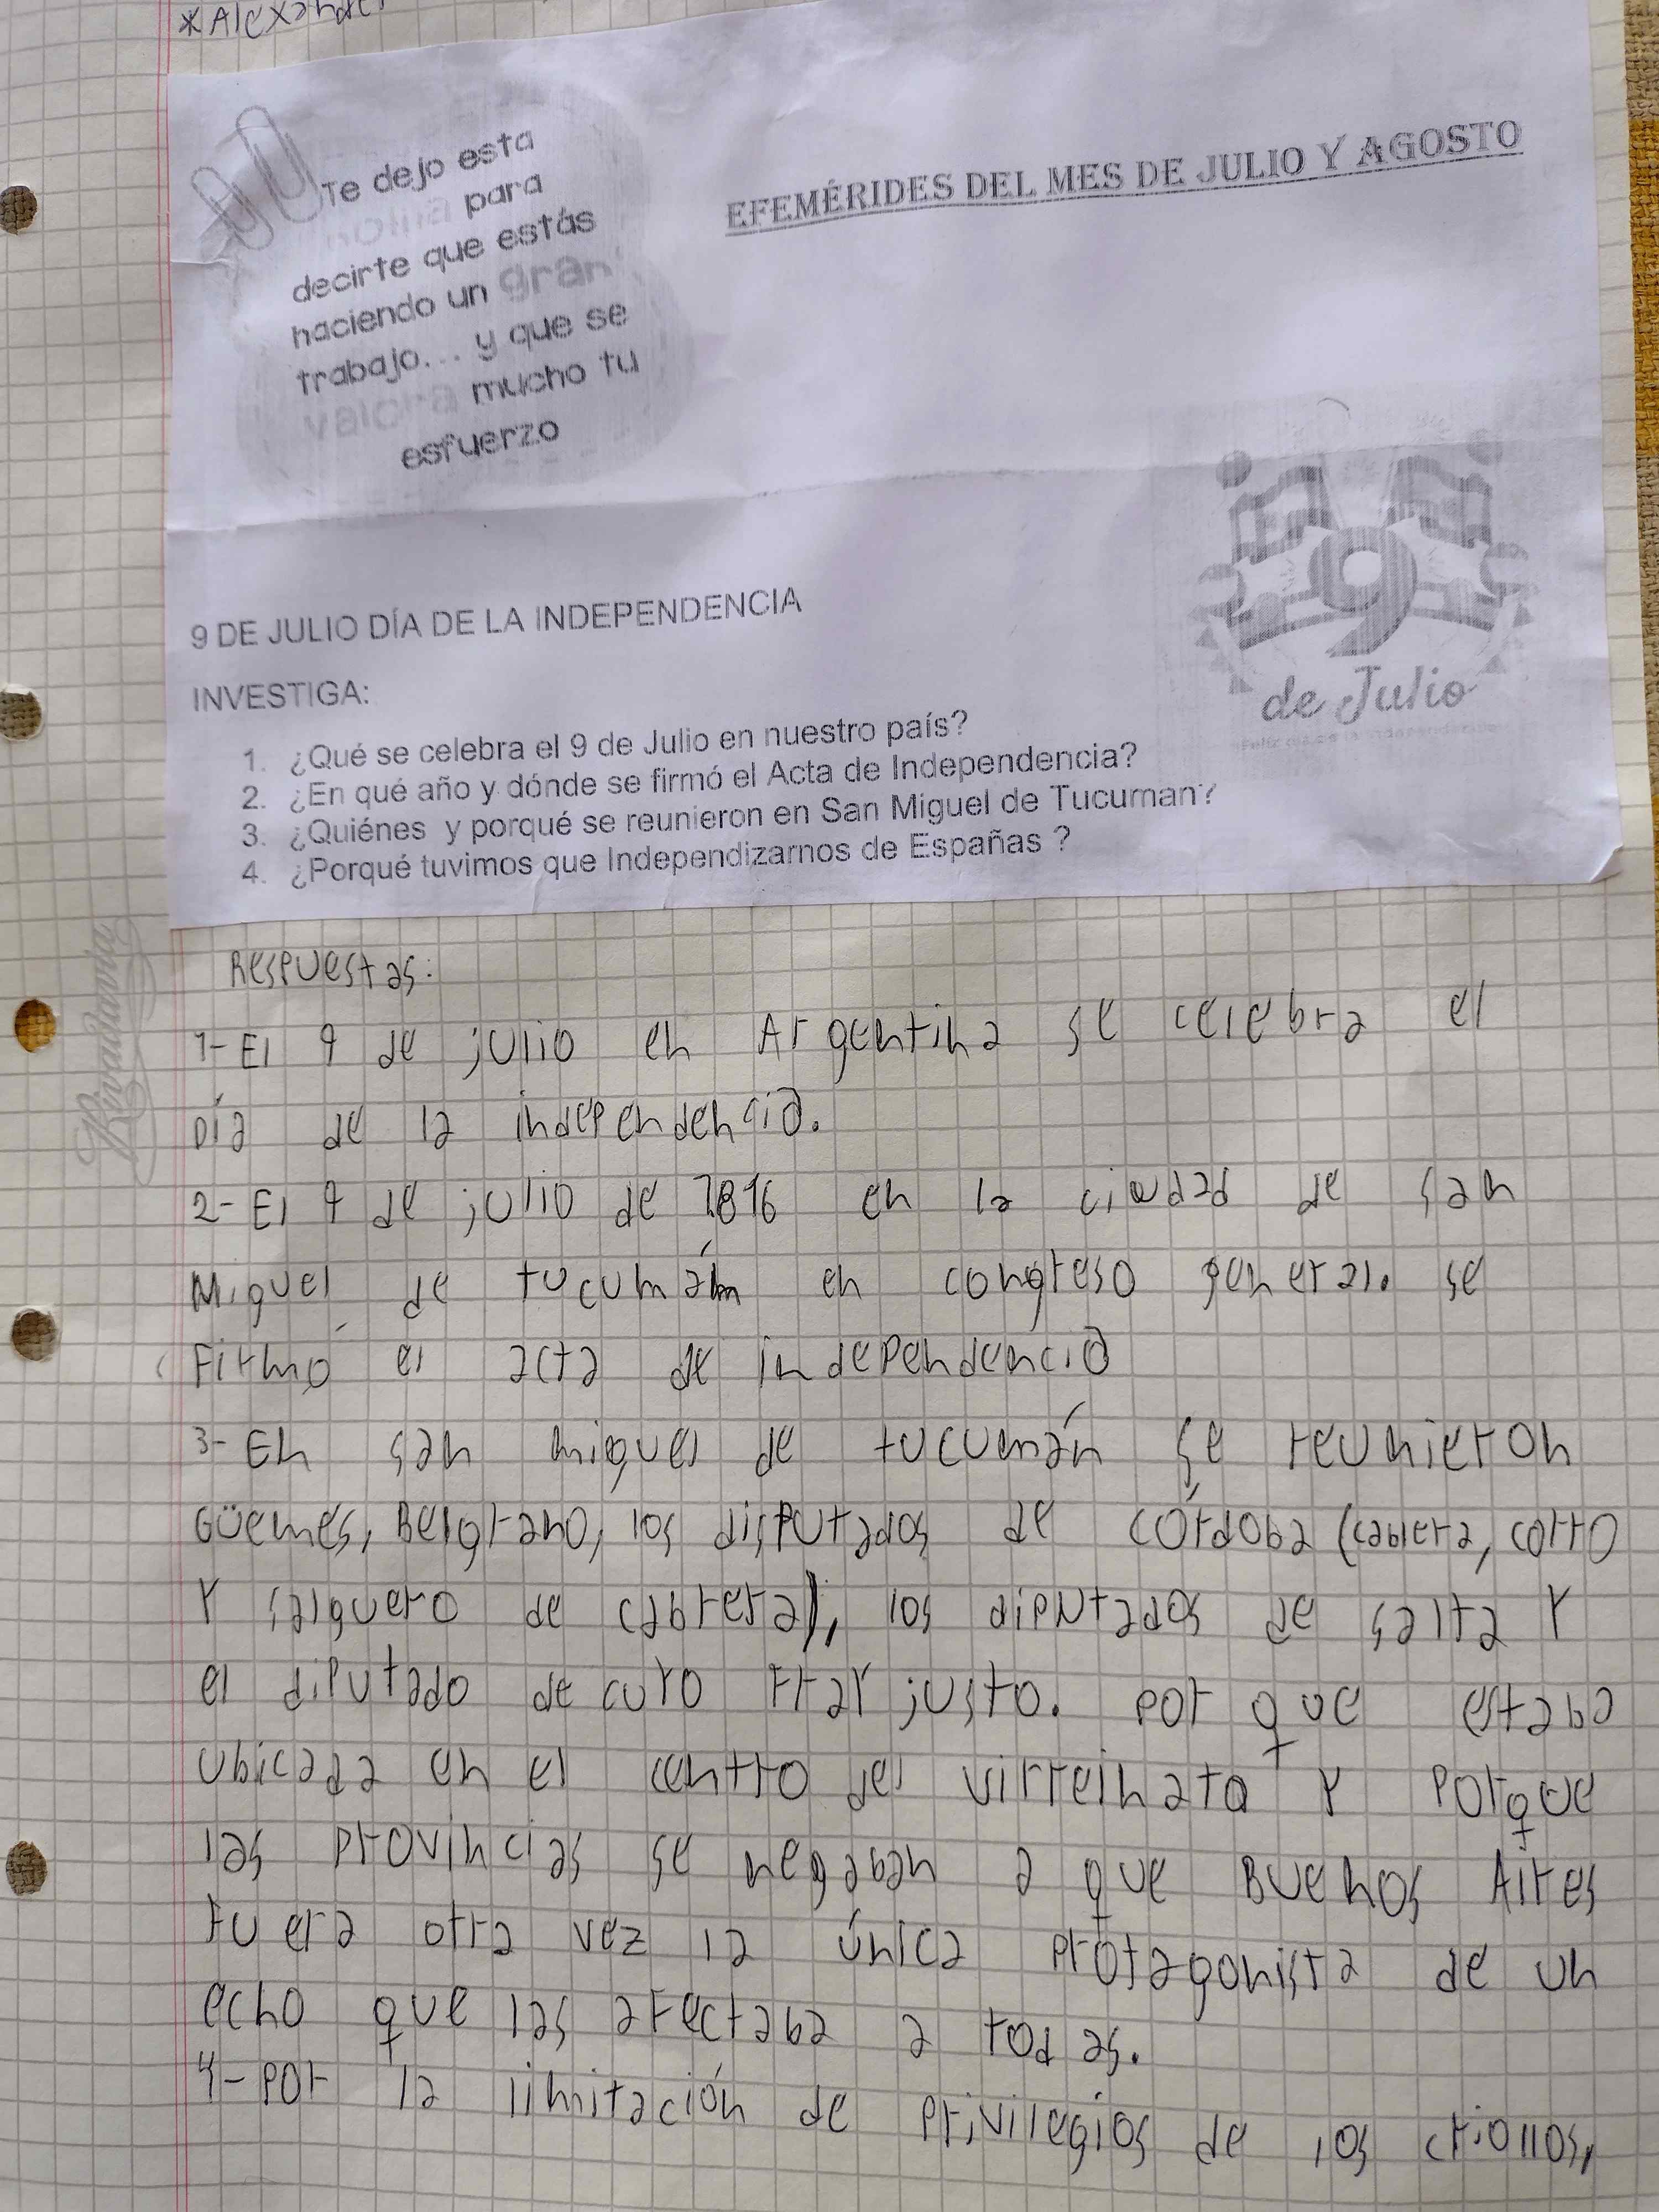 *Alexander
Te dejo esta
notita para
decirte que estás
haciendo un gran
trabajo... y que se
valora mucho tu
esfuerzo
EFEMÉRIDES DEL MES DE JULIO Y AGOSTO
9
de Julio
9 DE JULIO DÍA DE LA INDEPENDENCIA
INVESTIGA:
1. ¿Qué se celebra el 9 de Julio en nuestro país?
2. ¿En qué año y dónde se firmó el Acta de Independencia?
3. ¿Quiénes y porqué se reunieron en San Miguel de Tucuman?
4. ¿Porqué tuvimos que Independizarnos de Españas ?
Rivadavia
Respuestas:
1- El 9 de julio en Argentina se celebra el
Día de la independencia.
2- El 9 de julio de 1816 en la ciudad de san
Miguel de tucumám en congreso general. se
Firmó el acta de independencia
3- En san miguel de tucumán se reunieron
Güemes, Belgrano, los disputados de córdoba (cabrera, corro
Y salguero de cabrera), los diputados de salta Y
el diputado de cuyo Fray justo. por que estaba
ubicada en el centro del virreinato Y Porque
las provincias se negaban a que Buenos Aires
Fuera otra vez la única protagonista de un
echo que las afectaba a todas.
4- por la limitación de privilegios de los criollos,